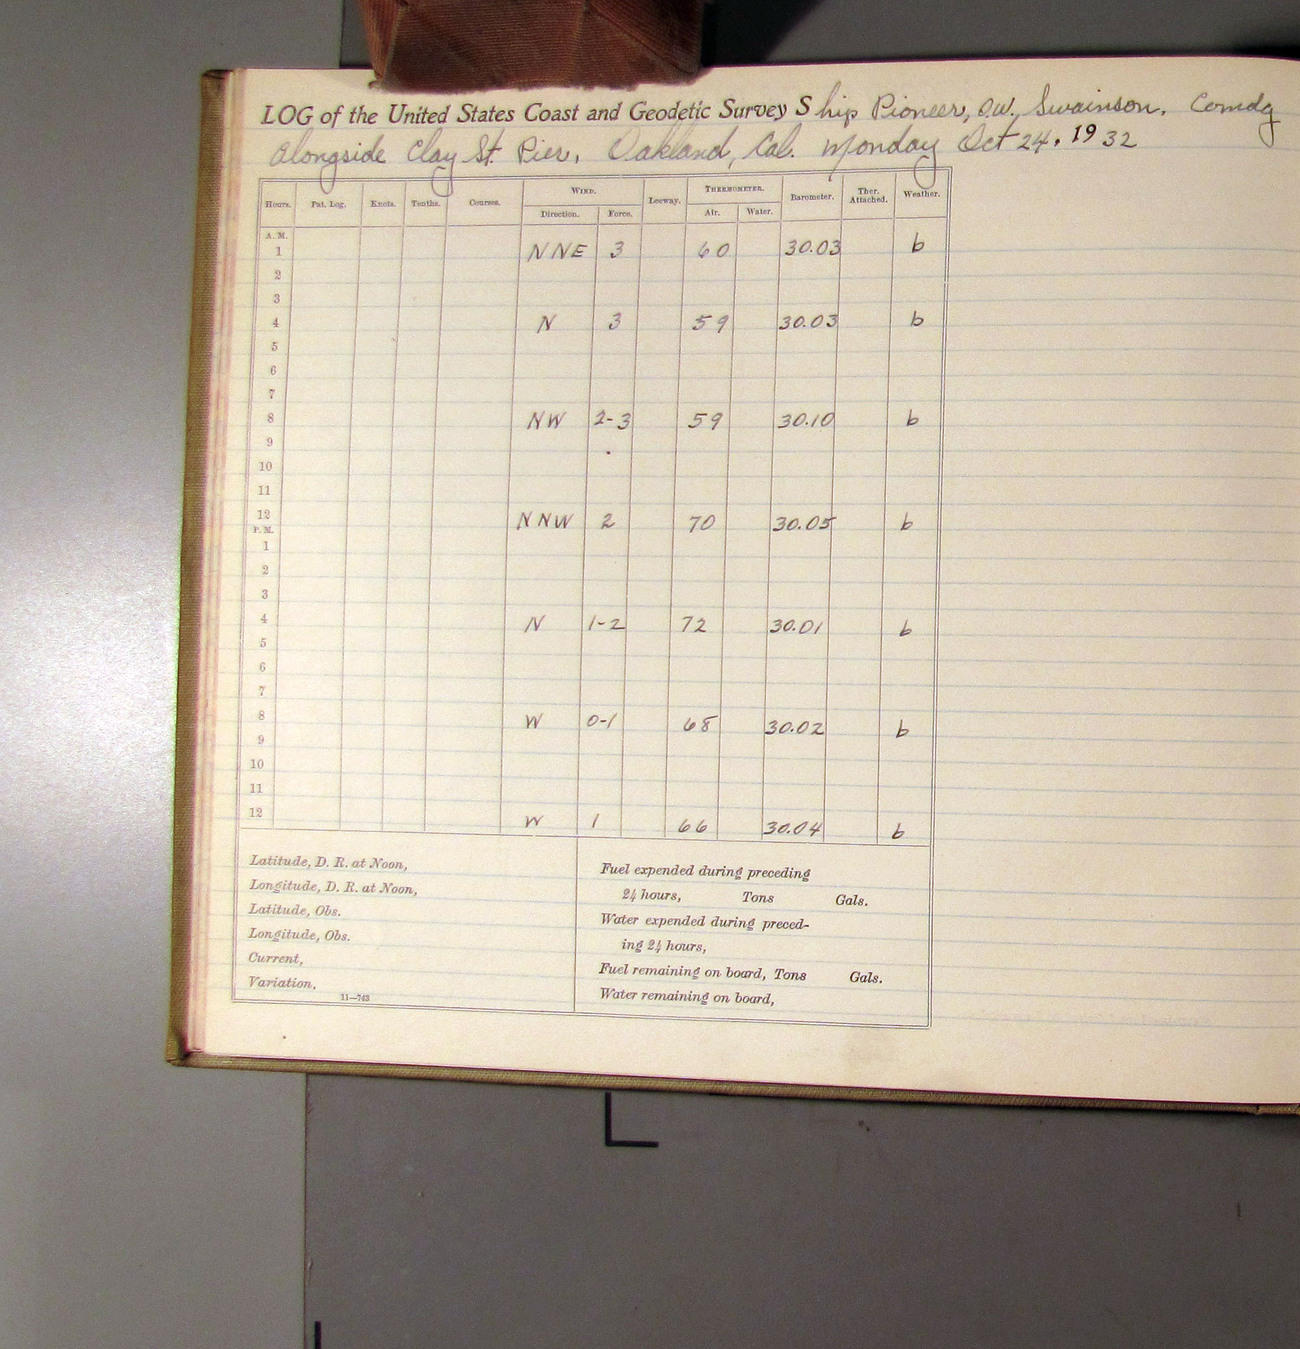 LOG of the United States Coast and Geodetic Survey Ship Pioneer, O.W. Swainson. Comdg
Alongside Clay St. Pier. Oakland, Cal. Monday Oct 24. 1932
Hours. Pat. Log. Knots. Tenths. Courses. WIND. Leeway. THERMOMETER. Barometer. Ther. Attached. Weather.
Direction. Force. Air. Water.
A. M.
1 NNE 3 60 30.03 b
2
3
4 N 3 59 30.03 b
5
6
7
8 NW 2-3 59 30.10 b
9
10
11
12 NNW 2 70 30.05 b
P. M.
1
2
3
4 N 1-2 72 30.01 b
5
6
7
8 W 0-1 68 30.02 b
9
10
11
12 W 1 66 30.04 b
Latitude, D. R. at Noon,
Longitude, D. R. at Noon,
Latitude, Obs.
Longitude, Obs.
Current,
Variation.
11—763
Fuel expended during preceding
24 hours, Tons Gals.
Water expended during preced-
ing 24 hours,
Fuel remaining on board, Tons Gals.
Water remaining on board,